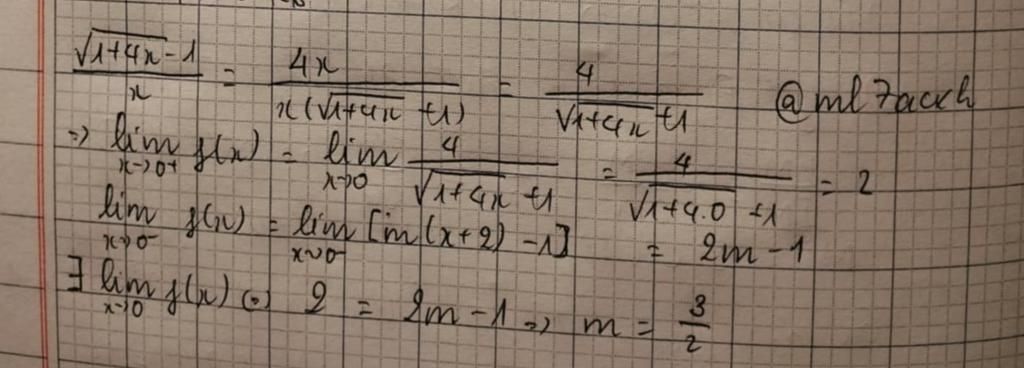 (√(1+4x) - 1)/x = 4x/(x(√(1+4x) + 1)) = 4/(√(1+4x) + 1) @ml7ackh
=> lim x→0+ f(x) = lim x→0 4/(√(1+4x) + 1) = 4/(√(1+4.0) + 1) = 2
lim x→0- f(x) = lim x→0- [m(x+2) - 1] = 2m - 1
∃ lim x→0 f(x) (=) 2 = 2m - 1 => m = 3/2